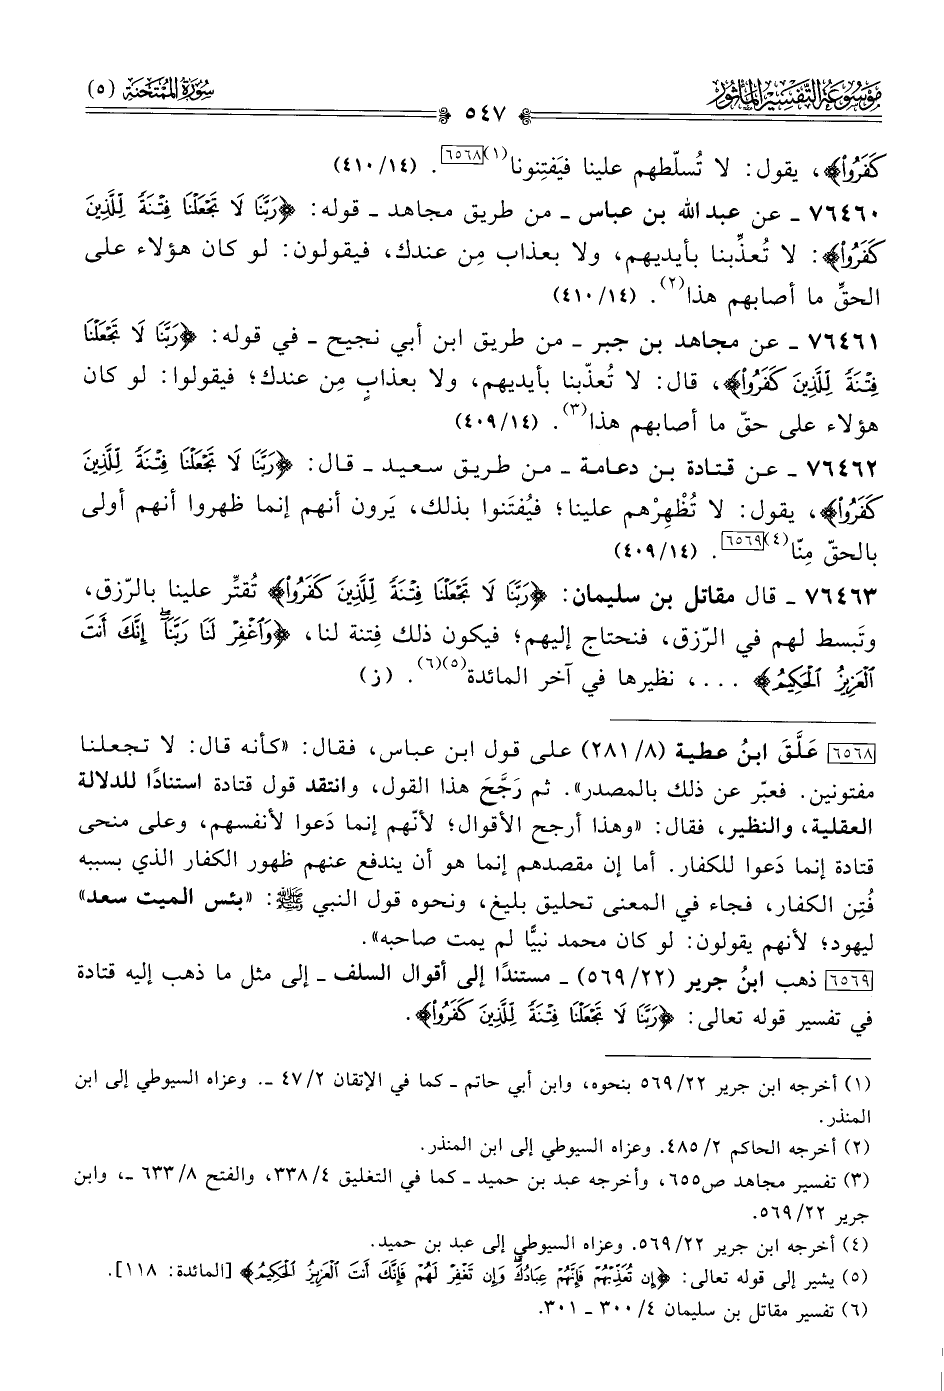 موسوعة التفسير المأثور
سورة الممتحنة (٥)
٥٤٧
كَفَرُواْ﴾، يقول: لا تُسلّطهم علينا فيَفتِنونا(١)[٦٥٦٨]. (١٤/ ٤١٠)
٧٦٤٦٠ ـ عن عبد الله بن عباس ـ من طريق مجاهد ـ قوله: ﴿رَبَّنَا لَا تَجۡعَلۡنَا فِتۡنَةٗ لِّلَّذِينَ
كَفَرُواْ﴾: لا تُعذِّبنا بأيديهم، ولا بعذاب مِن عندك، فيقولون: لو كان هؤلاء على
الحقِّ ما أصابهم هذا(٢). (١٤/ ٤١٠)
٧٦٤٦١ ـ عن مجاهد بن جبر ـ من طريق ابن أبي نجيح ـ في قوله: ﴿رَبَّنَا لَا تَجۡعَلۡنَا
فِتۡنَةٗ لِّلَّذِينَ كَفَرُواْ﴾، قال: لا تُعذّبنا بأيديهم، ولا بعذابٍ مِن عندك؛ فيقولوا: لو كان
هؤلاء على حقّ ما أصابهم هذا(٣). (١٤/ ٤٠٩)
٧٦٤٦٢ ـ عن قتادة بن دعامة ـ من طريق سعيد ـ قال: ﴿رَبَّنَا لَا تَجۡعَلۡنَا فِتۡنَةٗ لِّلَّذِينَ
كَفَرُواْ﴾، يقول: لا تُظْهِرْهم علينا؛ فيُفتَنوا بذلك، يَرون أنهم إنما ظهروا أنهم أولى
بالحقّ مِنّا(٤)[٦٥٦٩]. (١٤/ ٤٠٩)
٧٦٤٦٣ ـ قال مقاتل بن سليمان: ﴿رَبَّنَا لَا تَجۡعَلۡنَا فِتۡنَةٗ لِّلَّذِينَ كَفَرُواْ﴾ تُقتِّر علينا بالرّزق،
وتَبسط لهم في الرّزق، فنحتاج إليهم؛ فيكون ذلك فِتنة لنا، ﴿وَٱغۡفِرۡ لَنَا رَبَّنَآۖ إِنَّكَ أَنتَ
ٱلۡعَزِيزُ ٱلۡحَكِيمُ﴾ ...، نظيرها في آخر المائدة(٥)(٦). (ز)
[٦٥٦٨] عَلَّقَ ابنُ عطية (٨/ ٢٨١) على قول ابن عباس، فقال: «كأنه قال: لا تجعلنا
مفتونين. فعبّر عن ذلك بالمصدر». ثم رَجَّحَ هذا القول، وانتقد قول قتادة استنادًا للدلالة
العقلية، والنظير، فقال: «وهذا أرجح الأقوال؛ لأنّهم إنما دَعوا لأنفسهم، وعلى منحى
قتادة إنما دَعوا للكفار. أما إن مقصدهم إنما هو أن يندفع عنهم ظهور الكفار الذي بسببه
فُتِن الكفار، فجاء في المعنى تحليق بليغ، ونحوه قول النبي ﷺ: «بئس الميت سعد»
ليهود؛ لأنهم يقولون: لو كان محمد نبيًّا لم يمت صاحبه».
[٦٥٦٩] ذهب ابنُ جرير (٢٢/ ٥٦٩) ـ مستندًا إلى أقوال السلف ـ إلى مثل ما ذهب إليه قتادة
في تفسير قوله تعالى: ﴿رَبَّنَا لَا تَجۡعَلۡنَا فِتۡنَةٗ لِّلَّذِينَ كَفَرُواْ﴾.
(١) أخرجه ابن جرير ٢٢/ ٥٦٩ بنحوه، وابن أبي حاتم ـ كما في الإتقان ٢/ ٤٧ ـ. وعزاه السيوطي إلى ابن
المنذر.
(٢) أخرجه الحاكم ٢/ ٤٨٥. وعزاه السيوطي إلى ابن المنذر.
(٣) تفسير مجاهد ص٦٥٥، وأخرجه عبد بن حميد ـ كما في التغليق ٤/ ٣٣٨، والفتح ٨/ ٦٣٣ ـ، وابن
جرير ٢٢/ ٥٦٩.
(٤) أخرجه ابن جرير ٢٢/ ٥٦٩. وعزاه السيوطي إلى عبد بن حميد.
(٥) يشير إلى قوله تعالى: ﴿إِن تُعَذِّبۡهُمۡ فَإِنَّهُمۡ عِبَادُكَۖ وَإِن تَغۡفِرۡ لَهُمۡ فَإِنَّكَ أَنتَ ٱلۡعَزِيزُ ٱلۡحَكِيمُ﴾ [المائدة: ١١٨].
(٦) تفسير مقاتل بن سليمان ٤/ ٣٠٠ ـ ٣٠١.